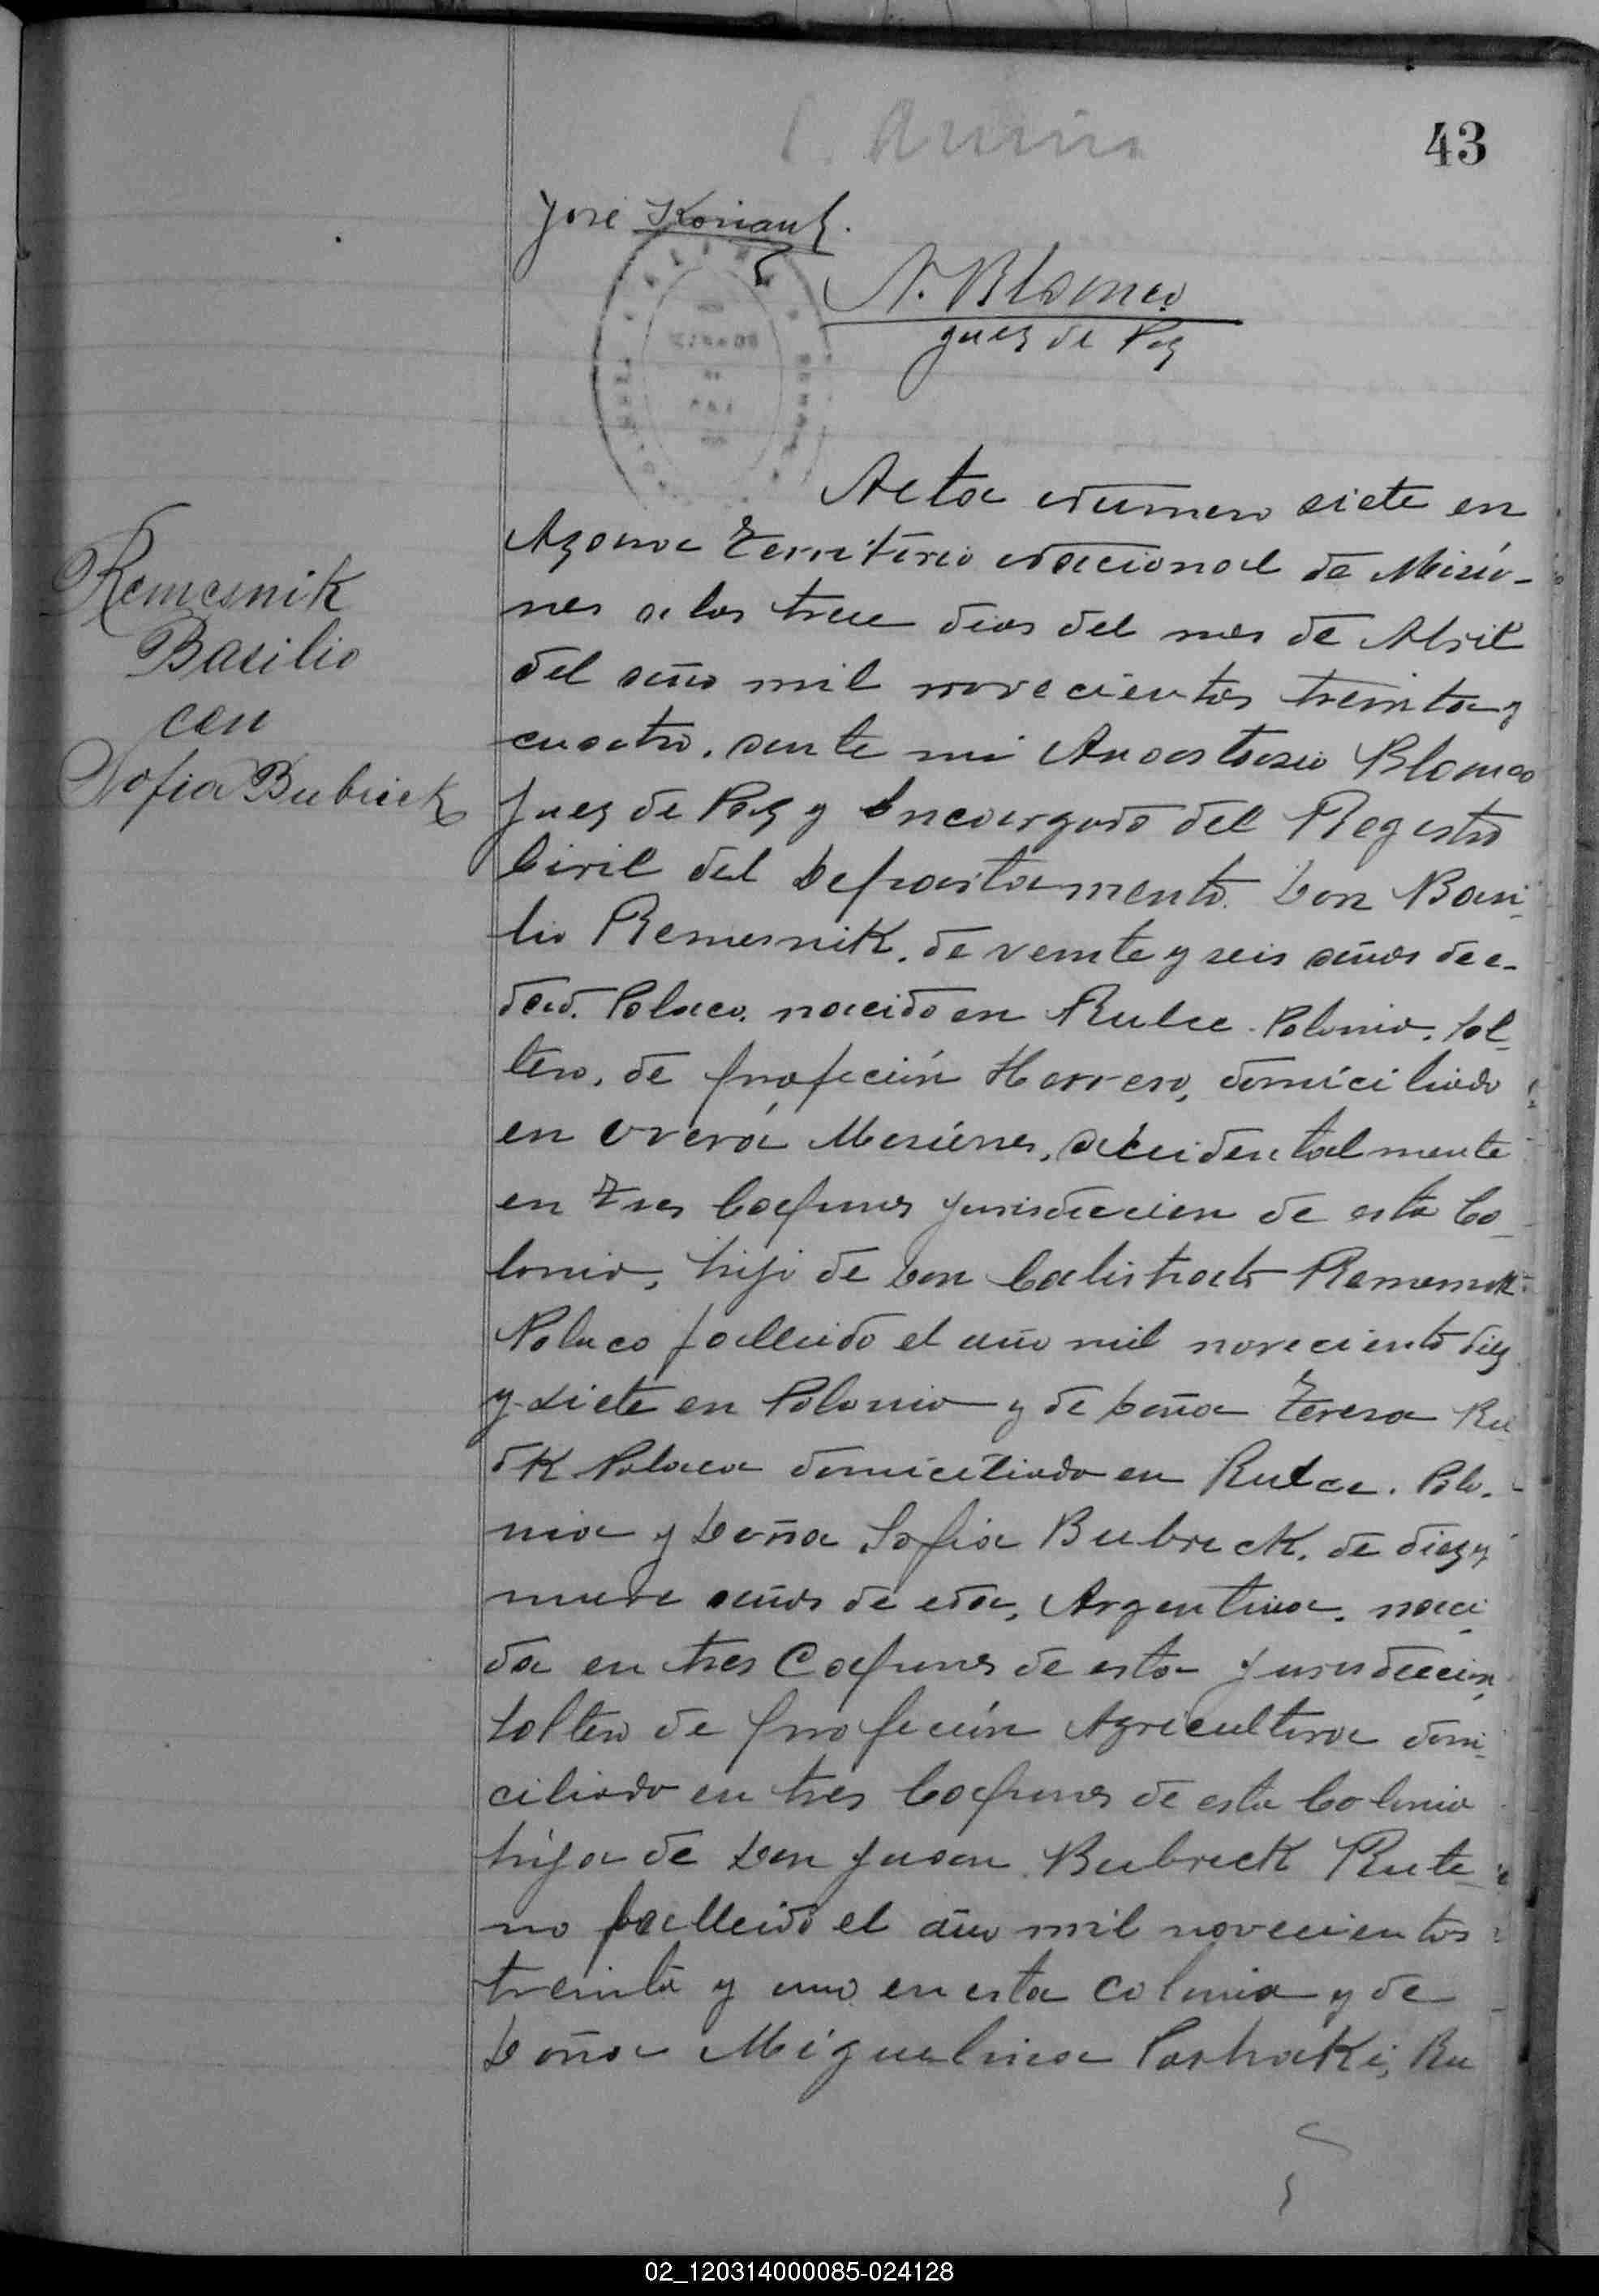 43
José
A. Blanco
Juez de Paz
Acta numero siete en
Azara Territorio Nacional de Misio-
nes a los trece dias del mes de Abril
del año mil novecientos treinta y
cuatro. ante mi Anastasio Blanco
Juez de Paz y Encargado del Registro
Civil del Departamento. Don Basi-
lio Remesnik, de veinte y seis años de e-
dad. Polaco. nacido en Rulce. Polonia. sol-
tero, de profeción Herrero, domiciliado
en Overá Misiones, accidentalmente
en Tres Capones jurisdiccion de esta Co-
lonia, hijo de Don Calistrato Remesnik
Polaco fallecido el año mil noveciento diez
y siete en Polonia y de Doña Teresa Ru
dk Polaca domiciliada en Rulce. Polo-
nia y Doña Sofia Bubreck. de diez y
nueve años de eda, Argentina. naci-
da en tres Capones de esta jurisdiccion,
soltera de profeción Agricultora domi-
ciliada en tres Capones de esta Colonia
hija de Don Juan Bubreck Rute-
no fallecido el año mil novecientos
treinta y uno en esta colonia y de
Doña Miguelina Ru
Remesnik
Basilio
con
Sofia Bubrick
02_120314000085-024128